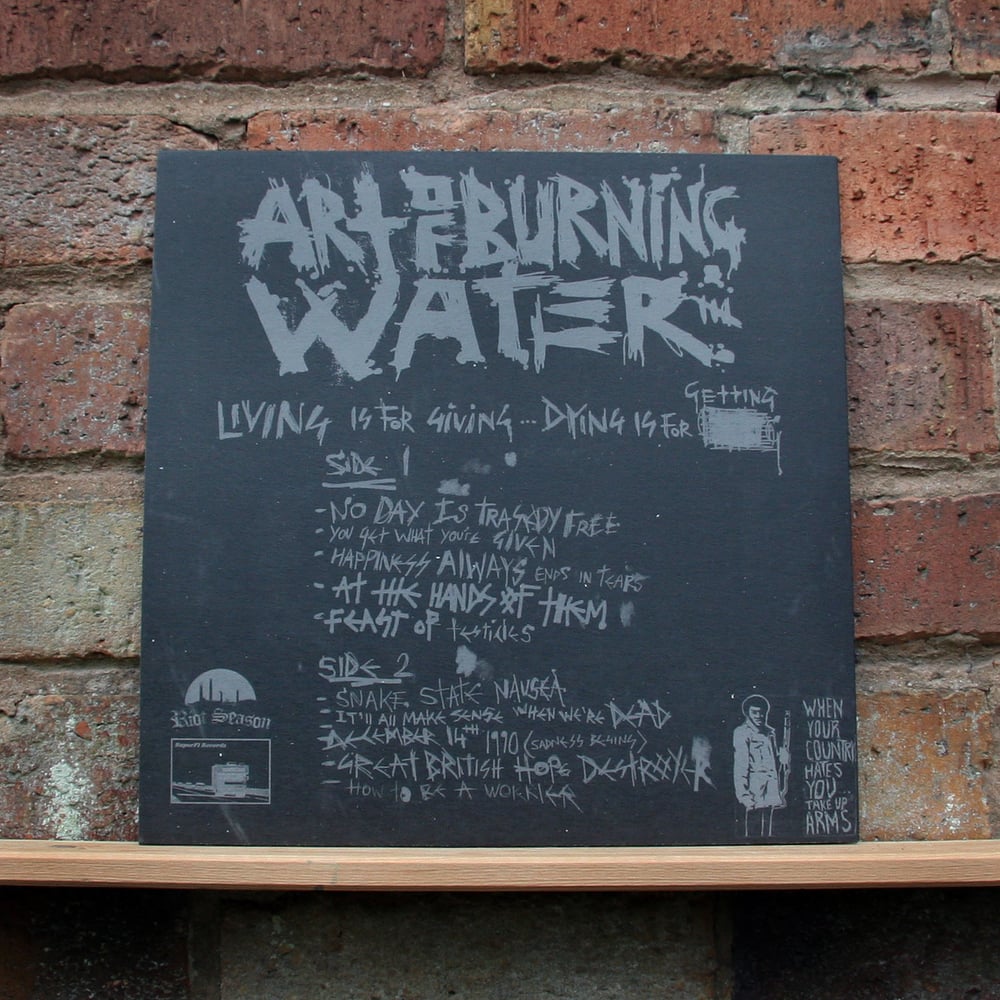 ART OF BURNING
WATER
LIVING IS FOR GIVING... DYING IS FOR GETTING
SIDE 1
- NO DAY IS TRAGEDY FREE
- YOU GET WHAT YOU'RE GIVEN
- HAPPINESS ALWAYS ENDS IN TEARS
- AT THE HANDS OF THEM
- FEAST OF testicles
SIDE 2
- SNAKE STATE NAUSEA
- IT'll All MAKE SENSE WHEN WE'RE DEAD
- DECEMBER 14TH 1990 (SADNESS BEGINS)
- GREAT BRITISH HOPE DESTROYER
- HOW to BE A WORRIER
Riot Season
SuperFi Records
WHEN
YOUR
COUNTRY
HATES
YOU...
TAKE UP
ARMS